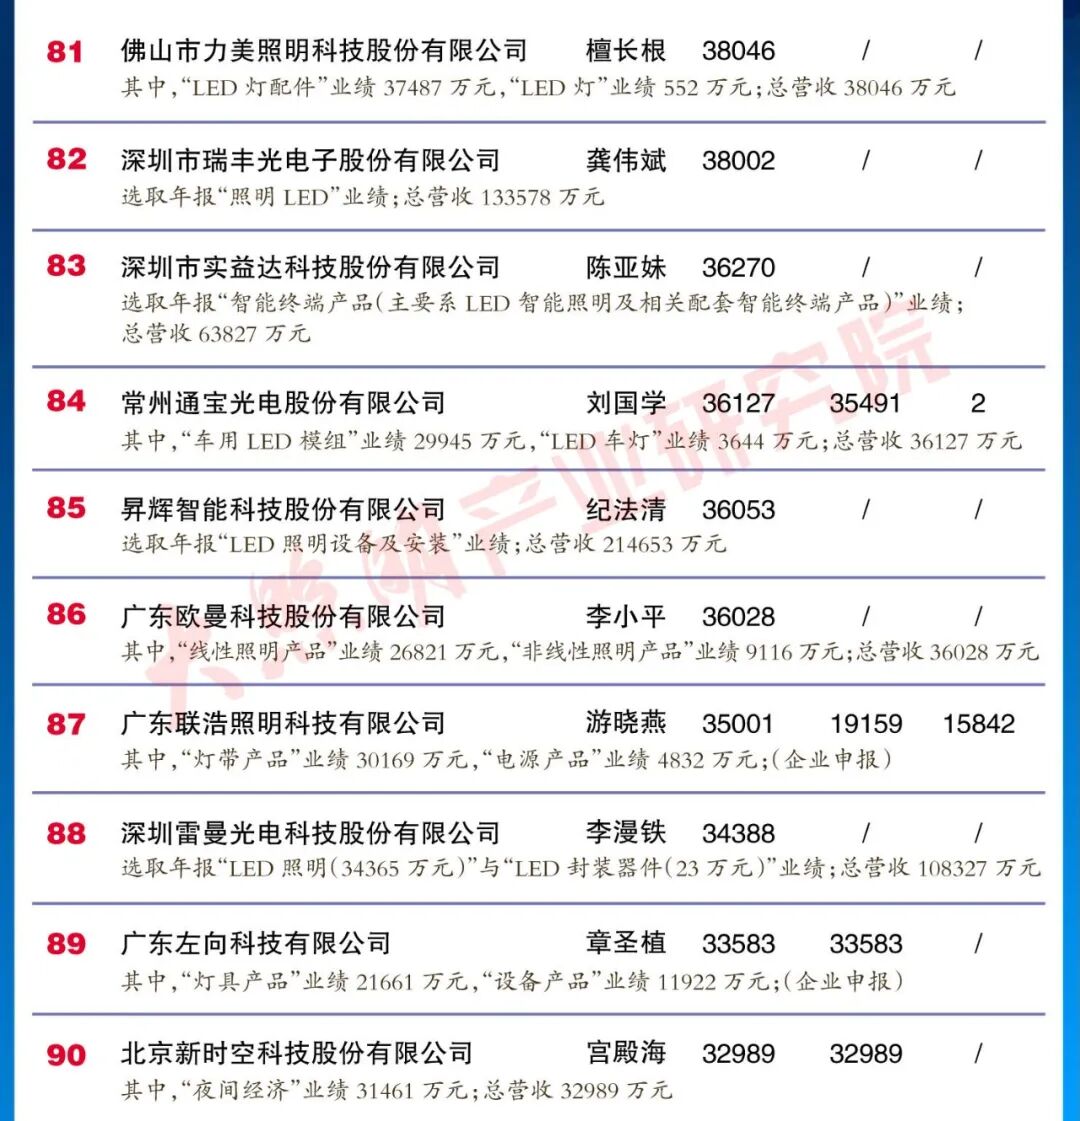 81 佛山市力美照明科技股份有限公司 檀长根 38046 / /
其中,“LED 灯配件”业绩 37487 万元,“LED 灯”业绩 552 万元;总营收 38046 万元
82 深圳市瑞丰光电子股份有限公司 龚伟斌 38002 / /
选取年报“照明 LED”业绩;总营收 133578 万元
83 深圳市实益达科技股份有限公司 陈亚妹 36270 / /
选取年报“智能终端产品(主要系 LED 智能照明及相关配套智能终端产品)”业绩;
总营收 63827 万元
84 常州通宝光电股份有限公司 刘国学 36127 35491 2
其中,“车用 LED 模组”业绩 29945 万元,“LED 车灯”业绩 3644 万元;总营收 36127 万元
85 昇辉智能科技股份有限公司 纪法清 36053 / /
选取年报“LED 照明设备及安装”业绩;总营收 214653 万元
86 广东欧曼科技股份有限公司 李小平 36028 / /
其中,“线性照明产品”业绩 26821 万元,“非线性照明产品”业绩 9116 万元;总营收 36028 万元
87 广东联浩照明科技有限公司 游晓燕 35001 19159 15842
其中,“灯带产品”业绩 30169 万元,“电源产品”业绩 4832 万元;(企业申报)
88 深圳雷曼光电科技股份有限公司 李漫铁 34388 / /
选取年报“LED 照明(34365 万元)”与“LED 封装器件(23 万元)”业绩;总营收 108327 万元
89 广东左向科技有限公司 章圣植 33583 33583 /
其中,“灯具产品”业绩 21661 万元,“设备产品”业绩 11922 万元;(企业申报)
90 北京新时空科技股份有限公司 宫殿海 32989 32989 /
其中,“夜间经济”业绩 31461 万元;总营收 32989 万元
大照明产业研究院